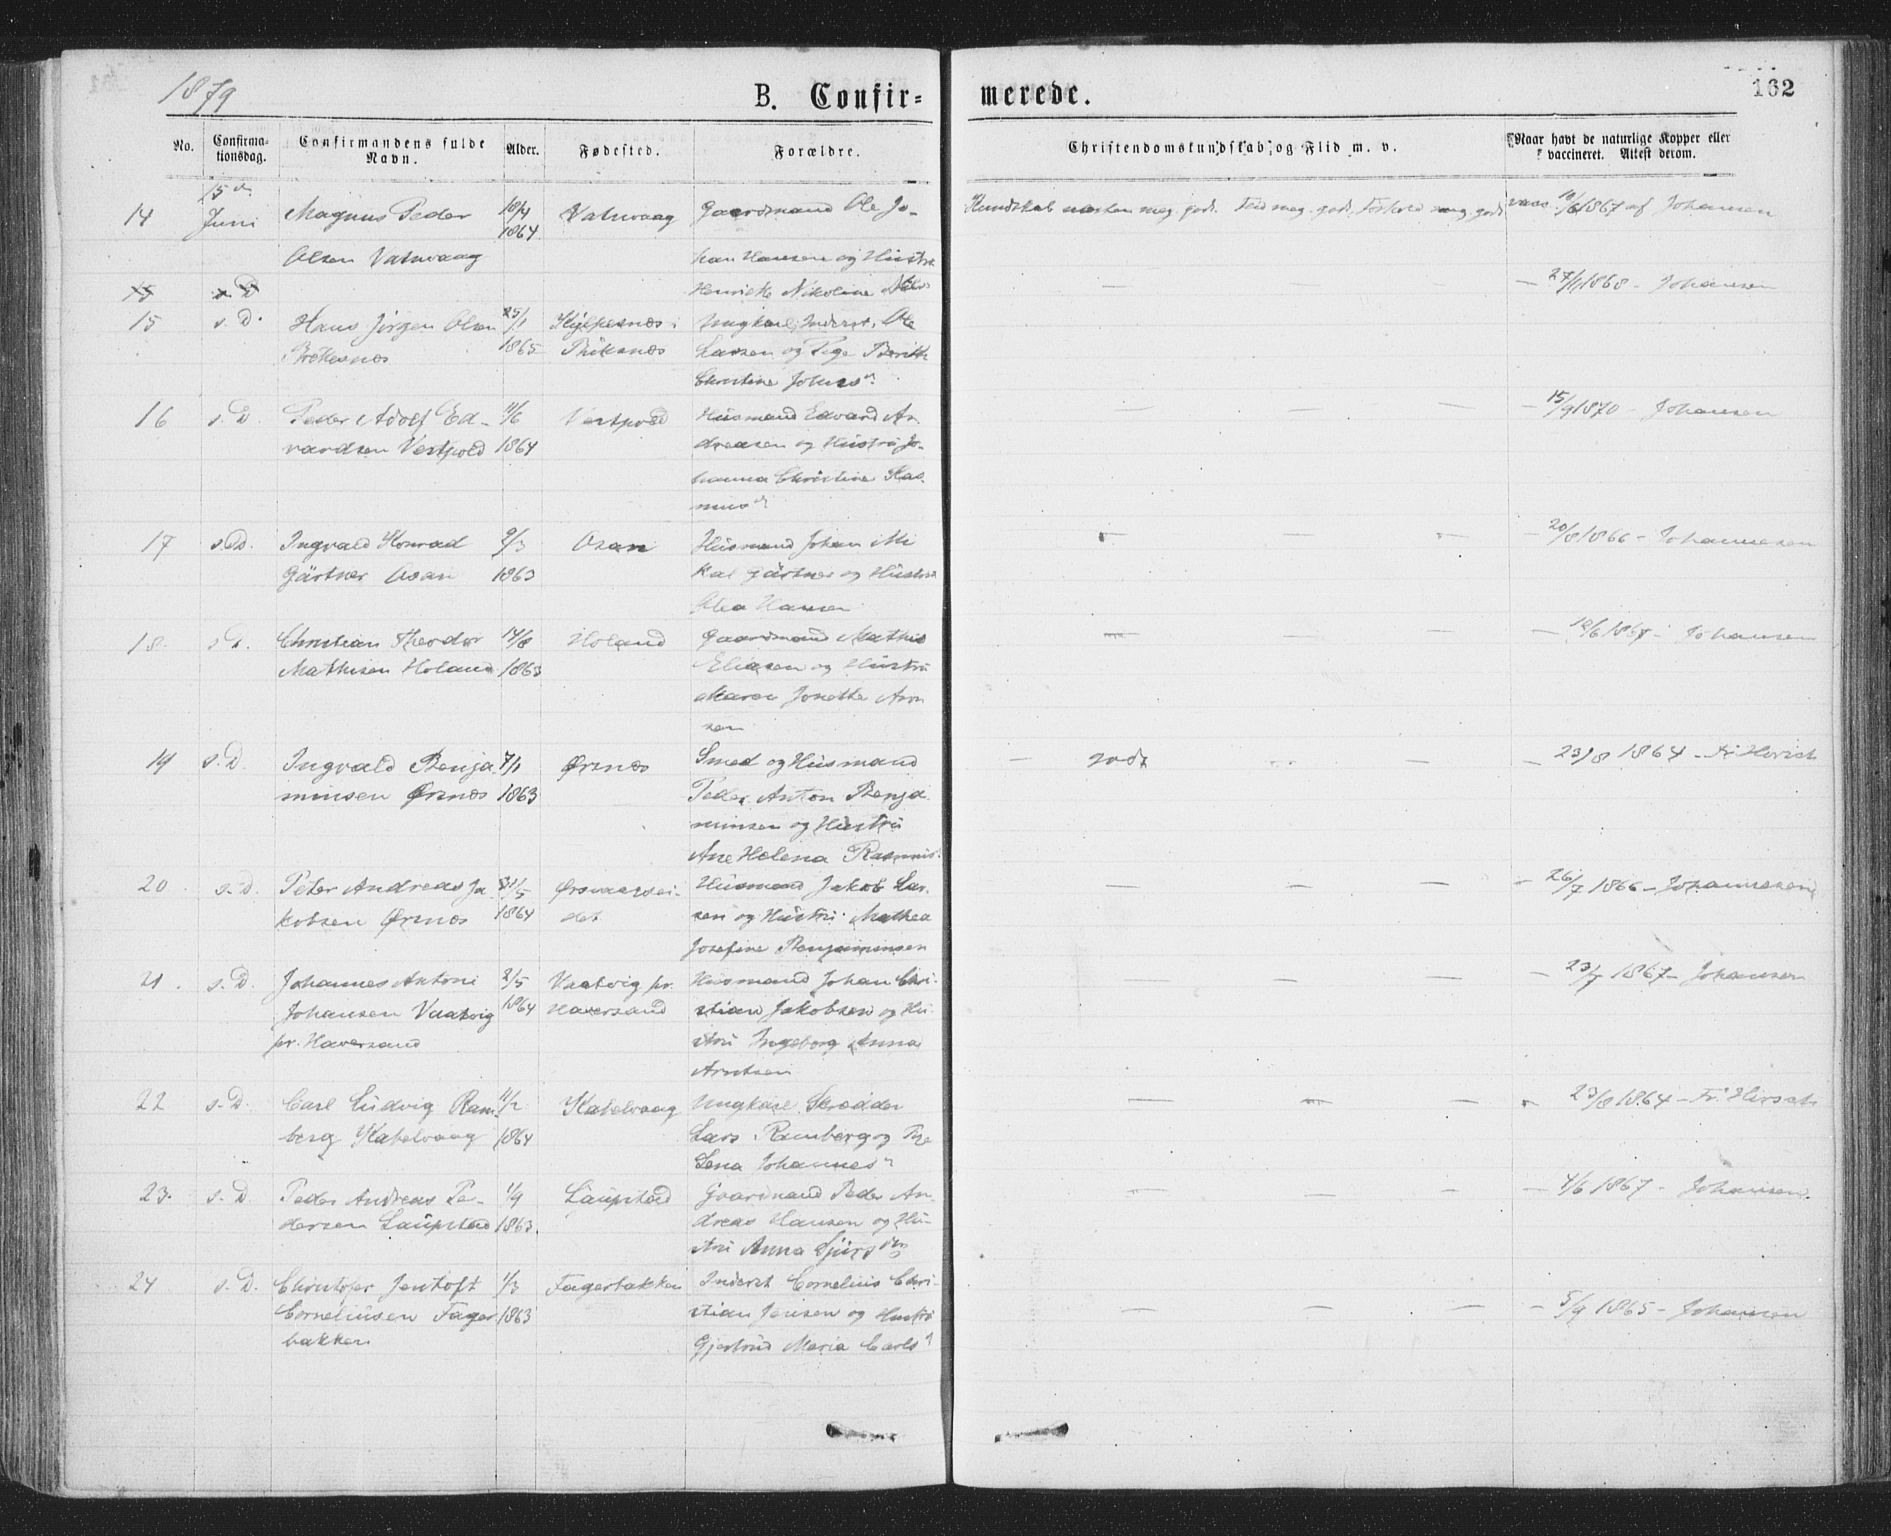 1879
B. Confir=
merede.
162
No.
Confirma-
tionsdag.
Confirmandens fulde
Navn.
Alder.
Fødested.
Forældre.
Christendomskundskab og Flid m. v.
Naar havt de naturlige Kopper eller
vaccineret. Attest derom.
14
15de
Juni
Magnus Peder
Olsen Vatnvaag
18/4
1864
Vatnvaag
Gaardmand Ole Jo-
han Hansen og Hustru
Henrikke Nikoline
Kundskab næsten meg. godt. Flid meg. godt, Forhold meg godt
vacc. 1867 af Johansen
15
s. D.
15
s. D.
Hans Jørgen Olsen
25/1
1865
Ungkarl, Inderst, Ole
Larsen og Pige Berith
Christine Johns
— — —
— 27/ 1868 - Johansen
16
s. D.
Peder Adolf Ed-
vardsen Vestpold
11/6
1864
Vestpold
Husmand Edvard An-
dreasen og Hustru Jo-
hanna Christine Ras-
mus
— — —
— 15/9 1870 - Johansen
17
s. D.
Ingvald Konrad
Gärtner Osan
9/3
1863
Osan
Husmand Johan Mi
kal Gärtner og Hustru
Olea Hansen
— — —
— 20/8 1866 - Johannesen
18.
s. D.
Christian Theodor
Mathisen Holand
14/8
1863
Holand
Gaardmand Mathis
Eliasen og Hustru
Maren Jonetta Arn
sen
— — —
— 1867 - Johansen
19
s. D.
Ingvald Benja
minsen Ørsnes
7/1
1863
Ørsnes
Smed og Husmand
Peder Anton Benja
minsen og Hustru
Ane Helena Rasmus.
— godt
— 23/8 1864 - Fr. Hirsch
20.
s. D.
Peter Andreas Ja
kobsen Ørsnes
31/5
1864
Ørsvaagsei-
det
Husmand Jakob Lar-
sen og Hustru Mathea
Josefine Benjaminsen
— — —
— 26/7 1866 - Johannesen
21.
s. D.
Johannes Antoni
Johansen Vaatvig
pr. Haversand
2/5
1864
Vaatvig pr.
Haversand
Husmand Johan Chri-
stian Jakobsen og Hu-
stru Ingeborg Anna
Arntsen
— — —
— 23/7 1867 - Johansen
22
s. D.
Carl Ludvig Ram-
berg Kabelvaag
11/2
1864
Kabelvaag
Ungkarl Skrædder
Lars Ramberg og Pige
Lena Johannes
— — —
23/8 1864 - Fr. Hirsch
23.
s. D.
Peder Andreas Pe-
dersen Laupstad
1/9
1863.
Laupstad
Gaardmand Peder An-
dreas Hansen og Hu-
stru Anna Sjurs
— — —
— 4/6 1867 - Johansen.
24
s. D.
Christofer Jentoft
Corneliusen Fager
bakken
1/3
1863
Fagerbakken
Inderst Cornelius Chri-
stian Jensen og Hustru
Gjertrud Maria Carls
— — —
— 5/9 1865 - Johansen